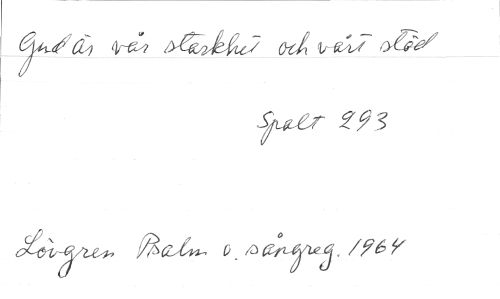 Gud är vår starkhet och vårt stöd
Spalt 293
Lövgren Psalm o. sångreg. 1964